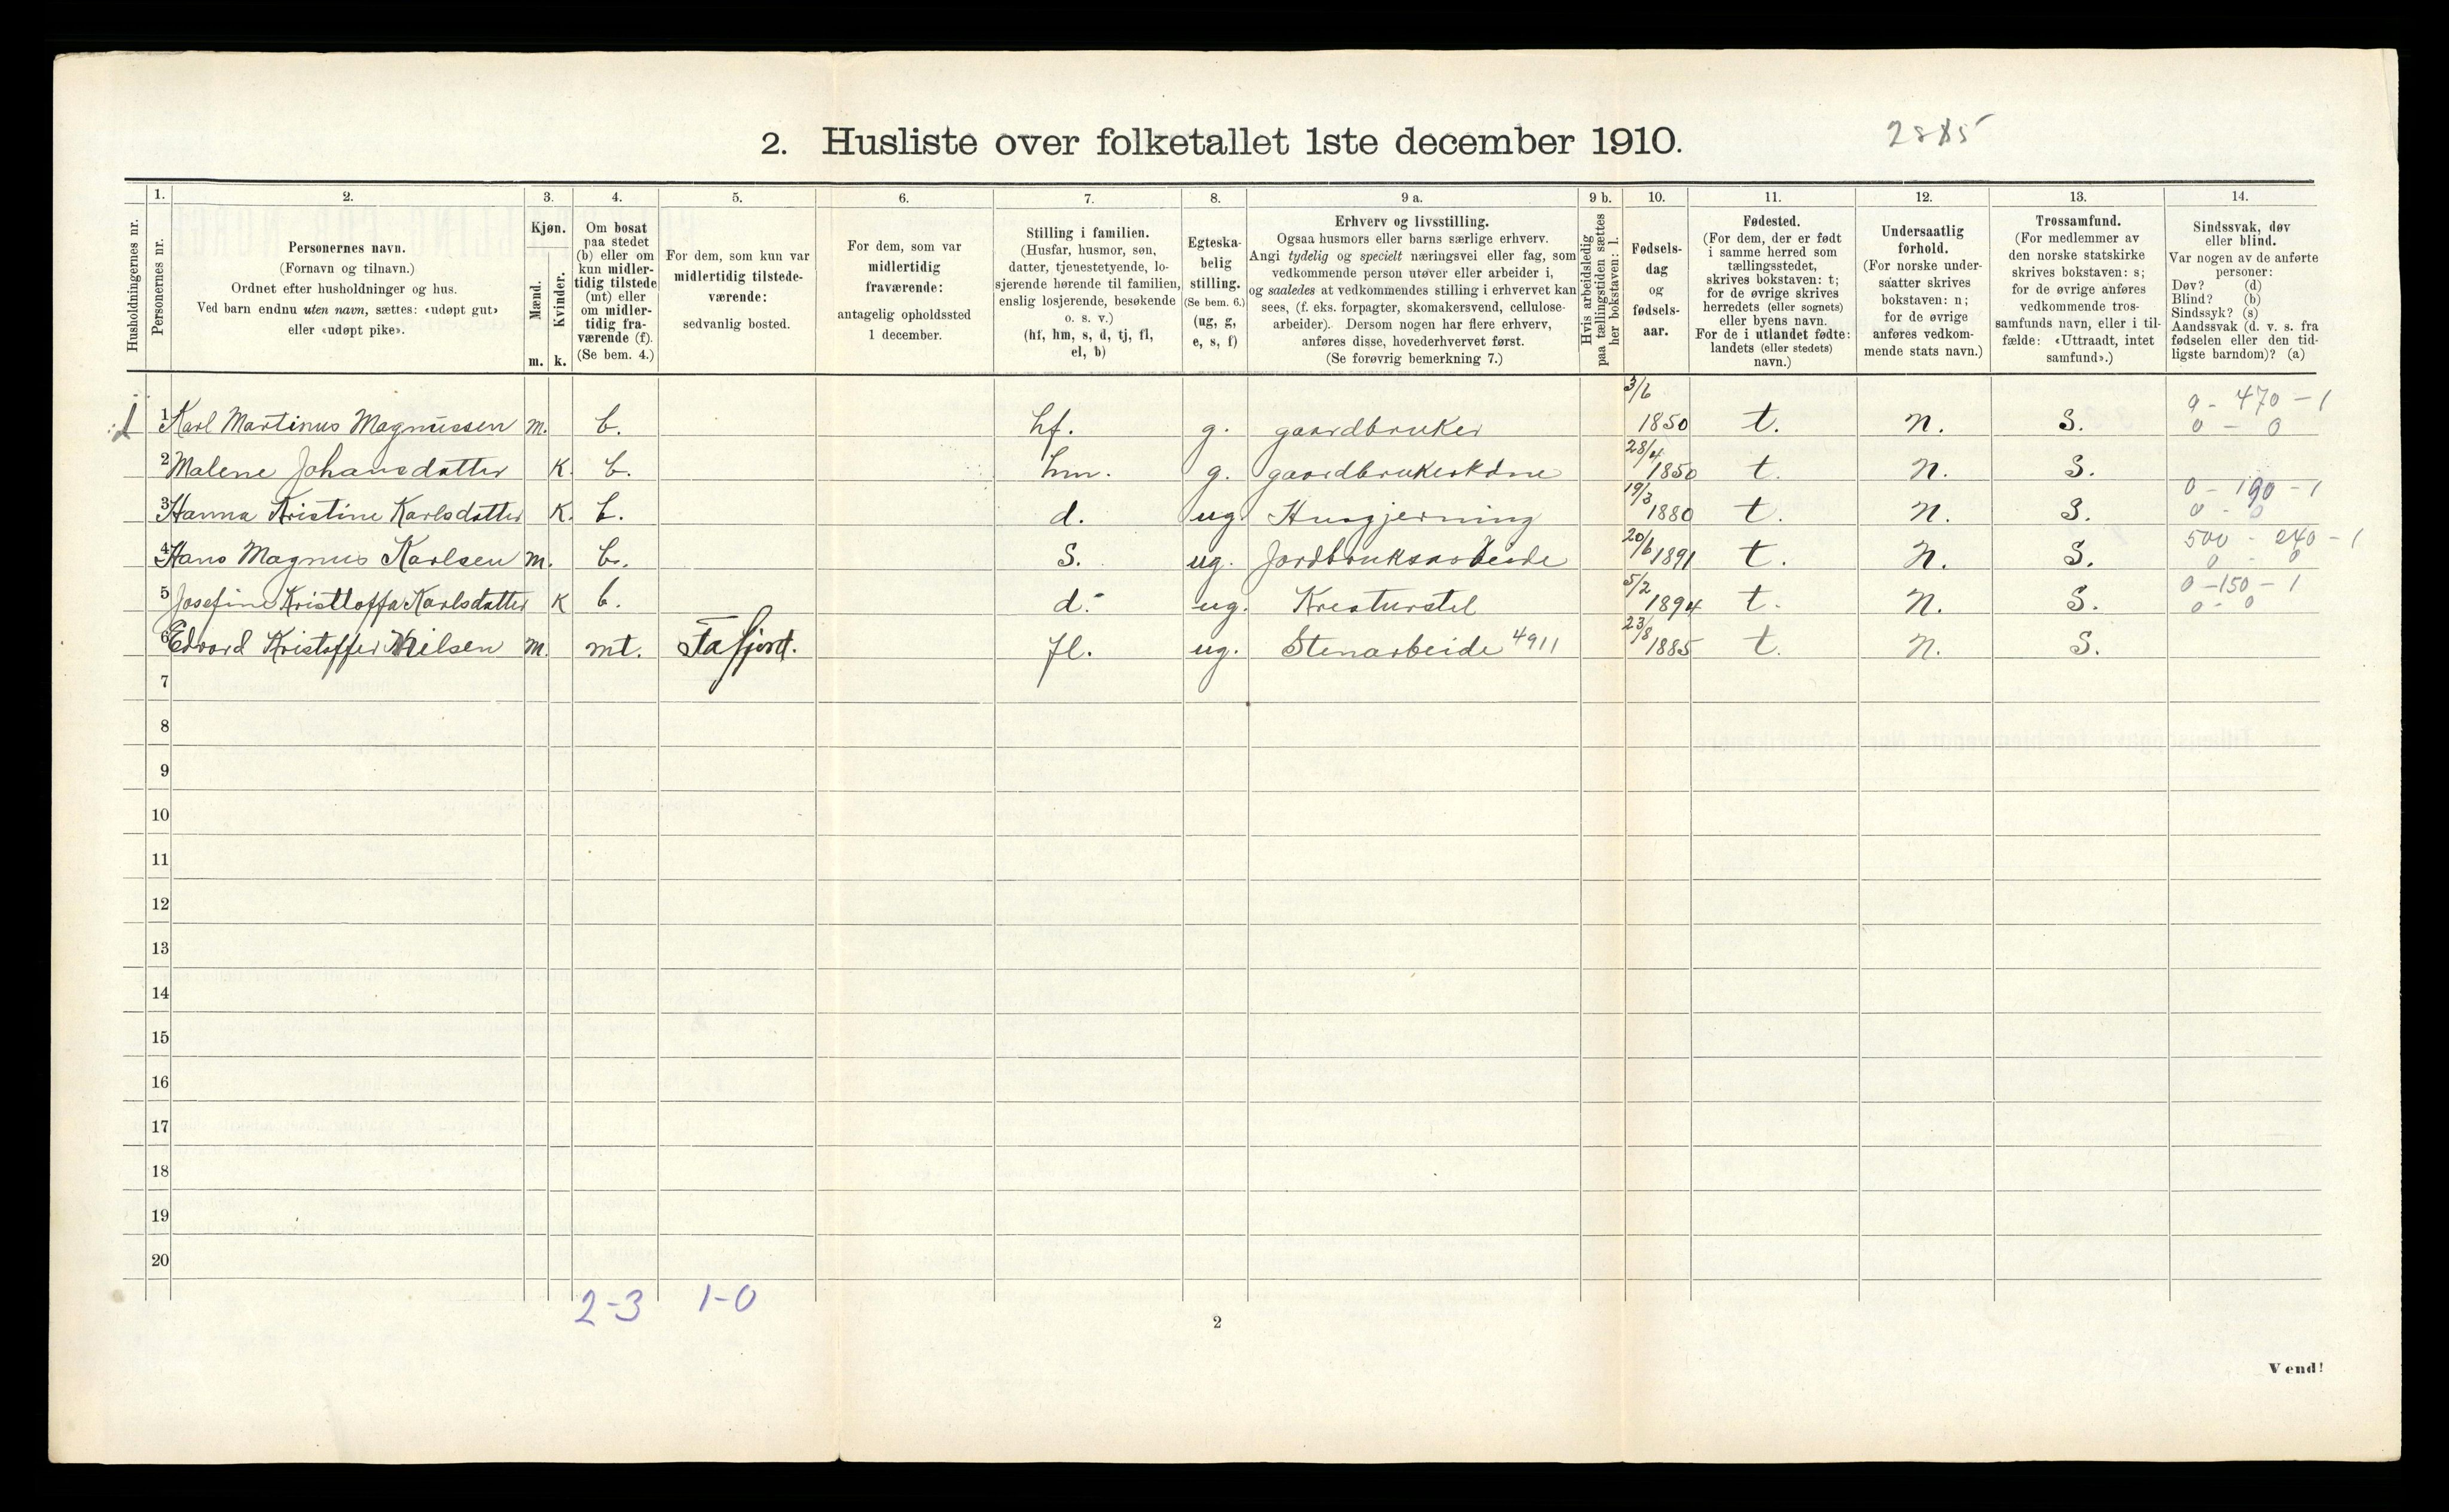 2. Husliste over folketallet 1ste december 1910.
1. 2. 3. 4. 5. 6. 7. 8. 9 a. 9 b. 10. 11. 12. 13. 14.
Husholdningernes nr.
Personernes nr.
Personernes navn.
(Fornavn og tilnavn.)
Ordnet efter husholdninger og hus.
Ved barn endnu uten navn, sættes: «udøpt gut»
eller «udøpt pike».
Kjøn.
Mænd.
Kvinder.
m. k.
Om bosat
paa stedet
(b) eller om
kun midler-
tidig tilstede
(mt) eller
om midler-
tidig fra-
værende (f).
(Se bem. 4.)
For dem, som kun var
midlertidig tilstede-
værende:
sedvanlig bosted.
For dem, som var
midlertidig
fraværende:
antagelig opholdssted
1 december.
Stilling i familien.
(Husfar, husmor, søn,
datter, tjenestetyende, lo-
sjerende hørende til familien,
enslig losjerende, besøkende
o. s. v.)
(hf, hm, s, d, tj, fl,
el, b)
Egteska-
belig
stilling.
(Se bem. 6.)
(ug, g,
e, s, f)
Erhverv og livsstilling.
Ogsaa husmors eller barns særlige erhverv.
Angi tydelig og specielt næringsvei eller fag, som
vedkommende person utøver eller arbeider i,
og saaledes at vedkommendes stilling i erhvervet kan
sees, (f. eks. forpagter, skomakersvend, cellulose-
arbeider). Dersom nogen har flere erhverv,
anføres disse, hovederhvervet først.
(Se forøvrig bemerkning 7.)
Hvis arbeidsledig
paa tællingstiden sættes
her bokstaven: l.
Fødsels-
dag
og
fødsels-
aar.
Fødested.
(For dem, der er født
i samme herred som
tællingsstedet,
skrives bokstaven: t;
for de øvrige skrives
herredets (eller sognets)
eller byens navn.
For de i utlandet fødte:
landets (eller stedets)
navn.)
Undersaatlig
forhold.
(For norske under-
saatter skrives
bokstaven: n;
for de øvrige
anføres vedkom-
mende stats navn.)
Trossamfund.
(For medlemmer av
den norske statskirke
skrives bokstaven: s;
for de øvrige anføres
vedkommende tros-
samfunds navn, eller i til-
fælde: «Uttraadt, intet
samfund».)
Sindssvak, døv
eller blind.
Var nogen av de anførte
personer:
Døv? (d)
Blind? (b)
Sindssyk? (s)
Aandssvak (d. v. s. fra
fødselen eller den tid-
ligste barndom)? (a)
1 1 Karl Martinus Magnussen m. b. hf. g. gaardbruker 3/6 1850 t. n. S. 0 - 470 - 1
0 - 0
2 Malene Johansdatter K. b. hm. g. gaardbrukerkone 28/4 1850 t. n. S.
3 Hanna Kristine Karlsdatter K. b. d. ug. Husgjerning 19/3 1880 t. n. S. 0 - 190 - 1
0 - 0
4 Hans Magnus Karlsen m. b. S. ug. Jordbruksarbeide 20/6 1891 t. n. S. 500 - 240 - 1
0 - 0
5 Josefine Kristloffa Karlsdatter K b. d. ug. Kreaturstel 5/2 1894 t. n. S. 0 - 150 - 1
0 - 0
6 Edvard Kristoffer Nilsen m. mt. Tafjord. fl. ug. Stenarbeide 4911 23/8 1885 t. n. S.
7
8
9
10
11
12
13
14
15
16
17
18
19
20
2-3 1-0
2
Vend!